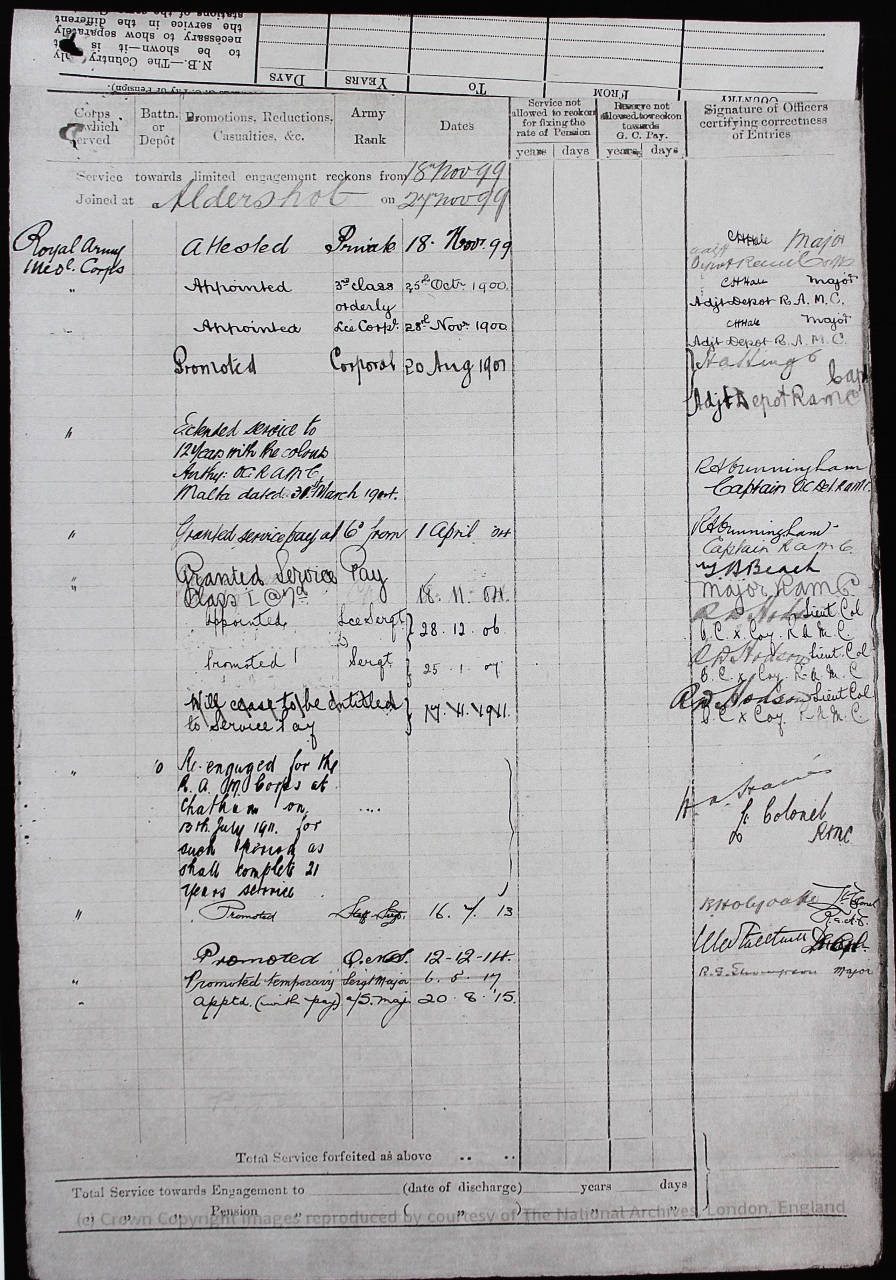 N.B.—The Country only
to be shown—it is
necessary to show separately
the service in the different
DAYS YEARS To FROM
COUNTRY
Corps which served
Battn. or Depôt
Promotions, Reductions, Casualties, &c.
Army Rank
Dates
Service not allowed to reckon for fixing the rate of Pension
years days
Reserve not allowed to reckon towards G. C. Pay.
years days
Signature of Officers certifying correctness of Entries
Service towards limited engagement reckons from 18 Nov 99
Joined at Aldershot on 27 Nov 99
Royal Army Attested Private 18. Nov. 99 CH Hale Major
Med. Corps Depot
" Appointed 3rd class 25th Oct. 1900. CH Hale Major
orderly Adjt Depot R. A. M. C.
Appointed Lce Corpl. 28th Nov. 1900 CH Hale Major
Adjt Depot R. A. M. C.
Promoted Corporal 20 Aug 1901
Adjt Depot RAMC
" Extended service to
12 Years with the colours
Authy: OC RAMC
Malta dated 31st March 1904.
Captain OC Det RAMC
" Granted service pay at 6d from 1 April 04
Captain RAMC
" Granted Service Pay Beach
" Class I @ 7d 18. 11. 04. Major RAMC
Appointed Lce Sergt 28. 12. 06 Lieut Col
O.C. x Coy. R A M C.
Promoted Sergt. 25. 1. 07 Lieut. Col
O.C. x Coy. R A M C
Will cease to be entitled Lieut Col
to Service Pay 17. XI. 1911. O.C x Coy. R A M C.
" Re-engaged for the
R. A. M Corps at
Chatham on ....
13th July 1911. for
such period as
shall complete 21
years service
Lt Colonel
RAMC
" Promoted Staff Sergt. 16. 7. 13 Holyoake Lt Colonel
Promoted Q.M.S. 12-12-14.
" Promoted temporary Sergt Major 6. 5. 17 Major
Apptd. (with pay) a/S. Maj 20. 8. '15.
Total Service forfeited as above .. ..
Total Service towards Engagement to (date of discharge) years days
" " Pension " ( " ) " "
(c) Crown Copyright Images reproduced by courtesy of The National Archives, London, England